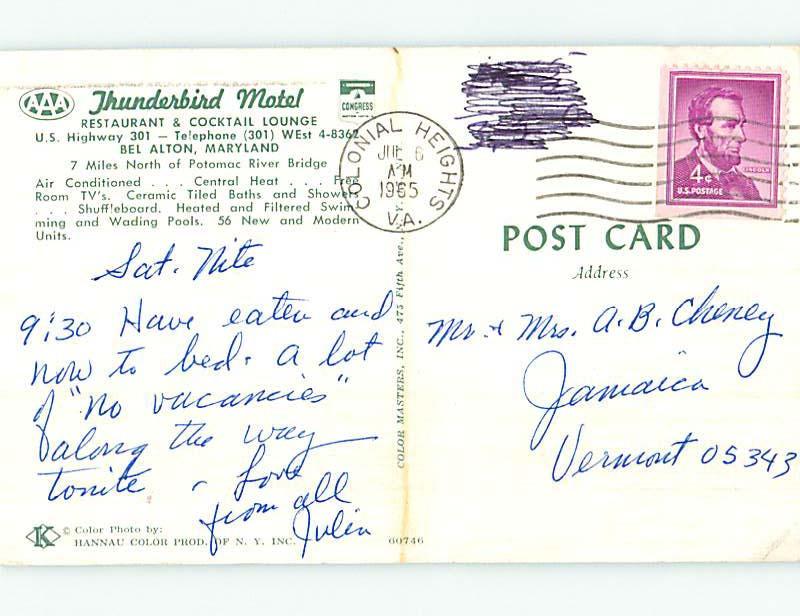 AAA
Thunderbird Motel
CONGRESS
RESTAURANT & COCKTAIL LOUNGE
U.S. Highway 301 — Telephone (301) WEst 4-8362
BEL ALTON, MARYLAND
7 Miles North of Potomac River Bridge
Air Conditioned . . . Central Heat . . . Free
Room TV's. Ceramic Tiled Baths and Showers
. . . Shuffleboard. Heated and Filtered Swim-
ming and Wading Pools. 56 New and Modern
Units.
Sat. Nite
9:30 Have eaten and
now to bed. A lot
of "no vacancies"
along the way
tonite - Love
from all
Julia
© Color Photo by:
HANNAU COLOR PROD. OF N. Y. INC.
60746
COLOR MASTERS, INC., 475 Fifth Ave., N.Y.
COLONIAL HEIGHTS
JUL 6
AM
1965
VA.
4¢
LINCOLN
U.S. POSTAGE
POST CARD
Address
Mr & Mrs. A. B. Cheney
Jamaica
Vermont 05343